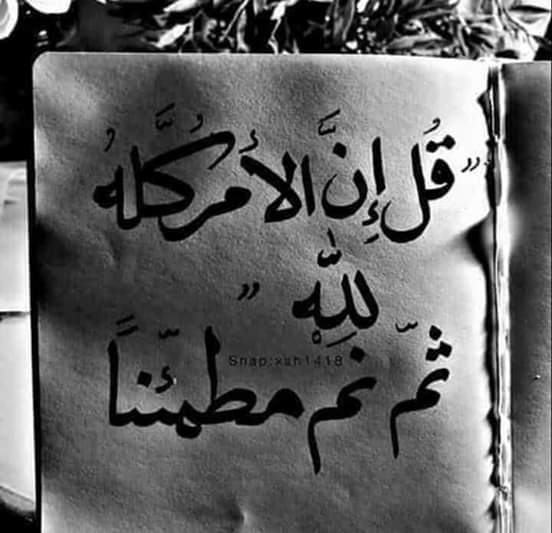 " قُل إِنَّ الأَمرُ كُلَّهُ
لِلَّهِ "
Snap:xsh1418
ثمّ نم مطمئنّاً